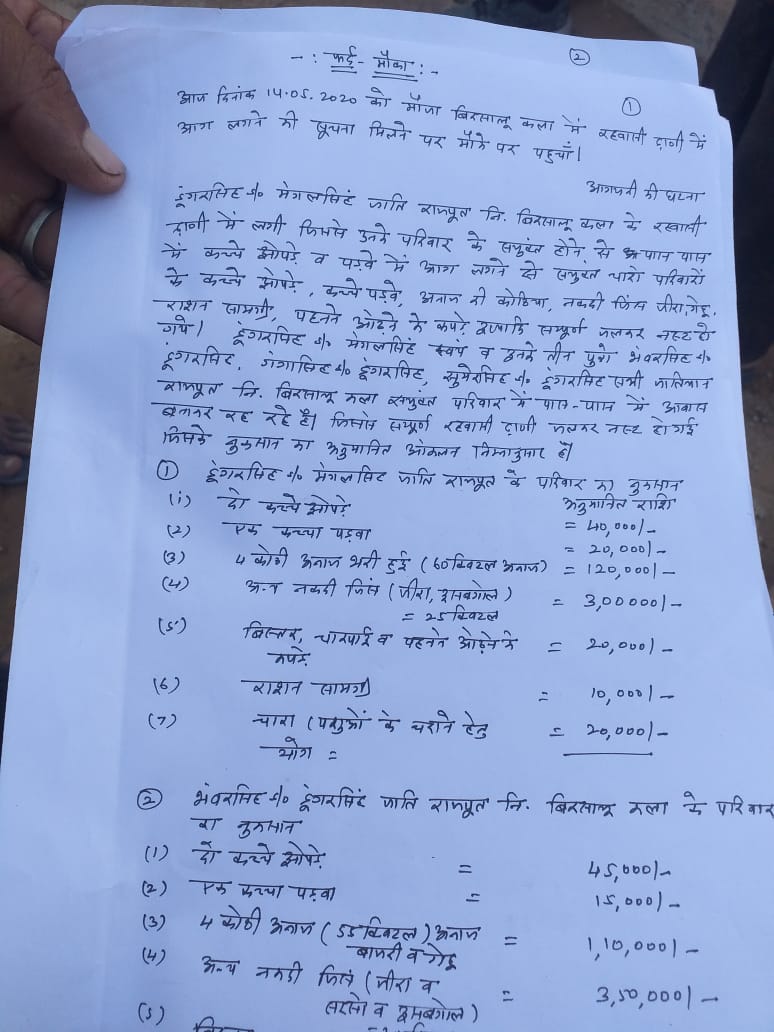 ②
-: फर्द - मौका :-
①
आज दिनांक 14.05.2020 को मौजा बिरसालू कला में रहवासी ढाणी में
आग लगने की सूचना मिलने पर मौके पर पहुचाँ।
आगजनी की घटना
डूंगरसिंह s/o मंगलसिंह जाति राजपूत नि. बिरसालू कला के रहवासी
ढाणी में लगी जिससे उनके परिवार के संयुक्त होने से पास पास
में कच्चे झोपड़े व पड़वे में आग लगने से संयुक्त चारो परिवारों
के कच्चे झोपड़े, कच्चे पड़वे, अनाज की कोठिया, नकदी जिंस जीरा, गेहू,
राशन सामग्री, पहनने ओढ़ने के कपड़े इत्यादि सम्पूर्ण जलकर नस्ट हो
गये। डूंगरसिंह s/o मंगलसिंह स्वंय व उनके तीन पुत्रो भंवरसिंह s/o
डूंगरसिंह, गंगासिंह s/o डूंगरसिंह, सुमेरसिंह s/o डूंगरसिंह सभी जातियान
राजपूत नि. बिरसालू कला संयुक्त परिवार में पास-पास में आवास
बनाकर रह रहे है। जिससे सम्पूर्ण रहवासी ढ़ाणी जलकर नस्ट हो गई
जिसके नुकसान का अनुमानित आंकलन निम्नानुसार है।
① डूंगरसिंह s/o मंगलसिंह जाति राजपूत के परिवार का नुकसान
अनुमानित राशि
(1) दो कच्चे झोपड़े = 40,000/-
(2) एक कच्चा पड़वा = 20,000/-
(3) 4 कोठी अनाज भरी हुई (60 क्विंटल अनाज) = 120,000/-
(4) अन्य नकदी जिंस (जीरा, इसबगोल) = 3,00000/-
= 25 क्विंटल
(5) बिस्तर, चारपाई व पहनने ओढ़ने के = 20,000/-
कपड़े
(6) राशन सामग्री = 10,000/-
(7) चारा (पशुओं के चराने हेतु = 20,000/-
योग =
② भंवरसिंह s/o डूंगरसिंह जाति राजपूत नि. बिरसालू कला के परिवार
का नुकसान
(1) दो कच्चे झोपड़े = 45,000/-
(2) एक कच्चा पड़वा = 15,000/-
(3) 4 कोठी अनाज (55 क्विंटल) अनाज = 1,10,000/-
बाजरी व गेहू
(4) अन्य नकदी जिंस (जीरा व = 3,50,000/-
सरसो व इसबगोल)
(5)